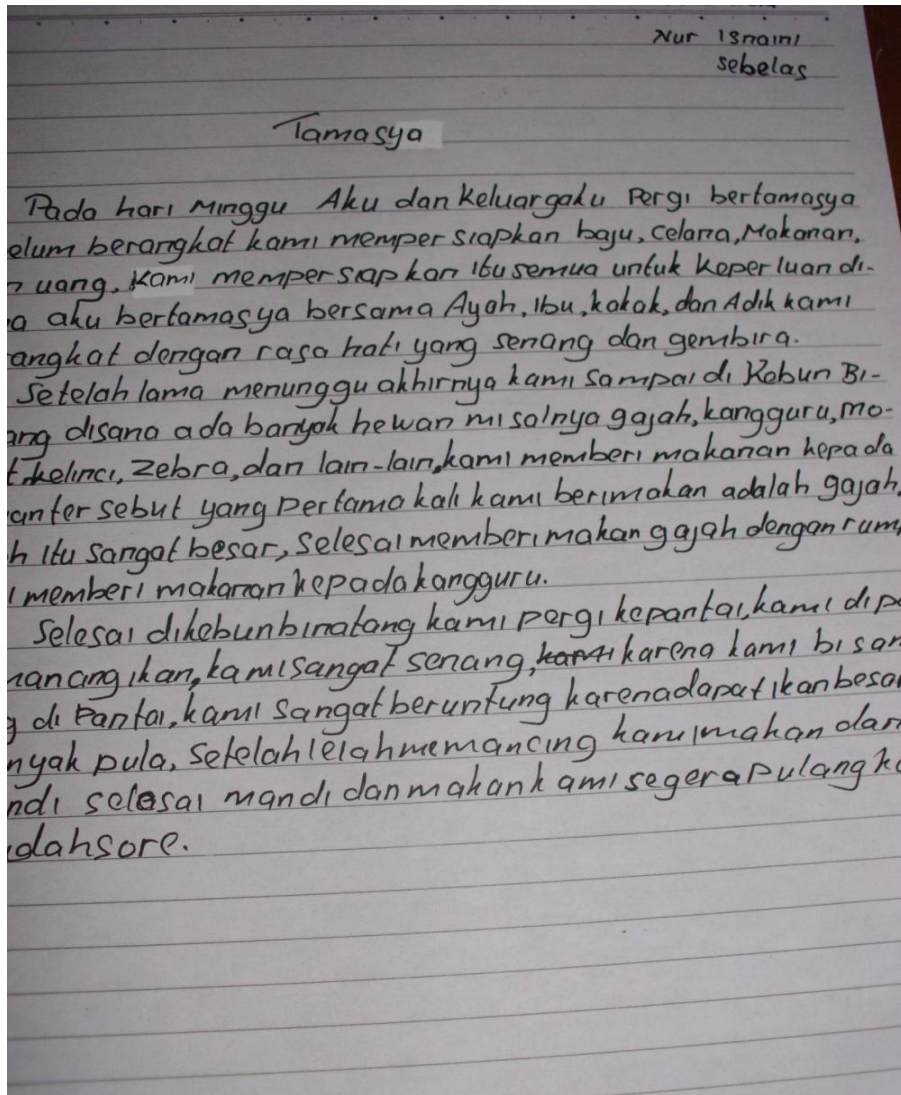 Nur Isnaini
sebelas
Tamasya
Pada hari Minggu Aku dan Keluargaku Pergi bertamasya
elum berangkat kami memper siapkan baju, Celana, Makanan,
n uang. Kami memper siap kan itu semua untuk Keper luan di-
a aku bertamasya bersama Ayah, ibu, kakak, dan Adik kami
angkat dengan rasa hati yang senang dan gembira.
Setelah lama menunggu akhirnya kami sampai di Kebun Bi-
ang disana ada banyak hewan misalnya gajah, kangguru, mo-
t kelinci, Zebra, dan lain-lain, kami memberi makanan kepada
an ter sebut yang Pertama kali kami beri makan adalah gajah,
h itu sangat besar, Selesai memberi makan gajah dengan rum
i memberi makanan kepada kangguru.
Selesai dikebun binatang kami pergi kepantai, kami di p
nancing ikan, kami sangat senang, karena kami bisa
g di Pantai, kami sangat beruntung karena dapat ikan besa
nyak pula, Setelah lelah memancing kami makan dan
ndi selesai mandi dan makan kami segera pulang k
dah sore.